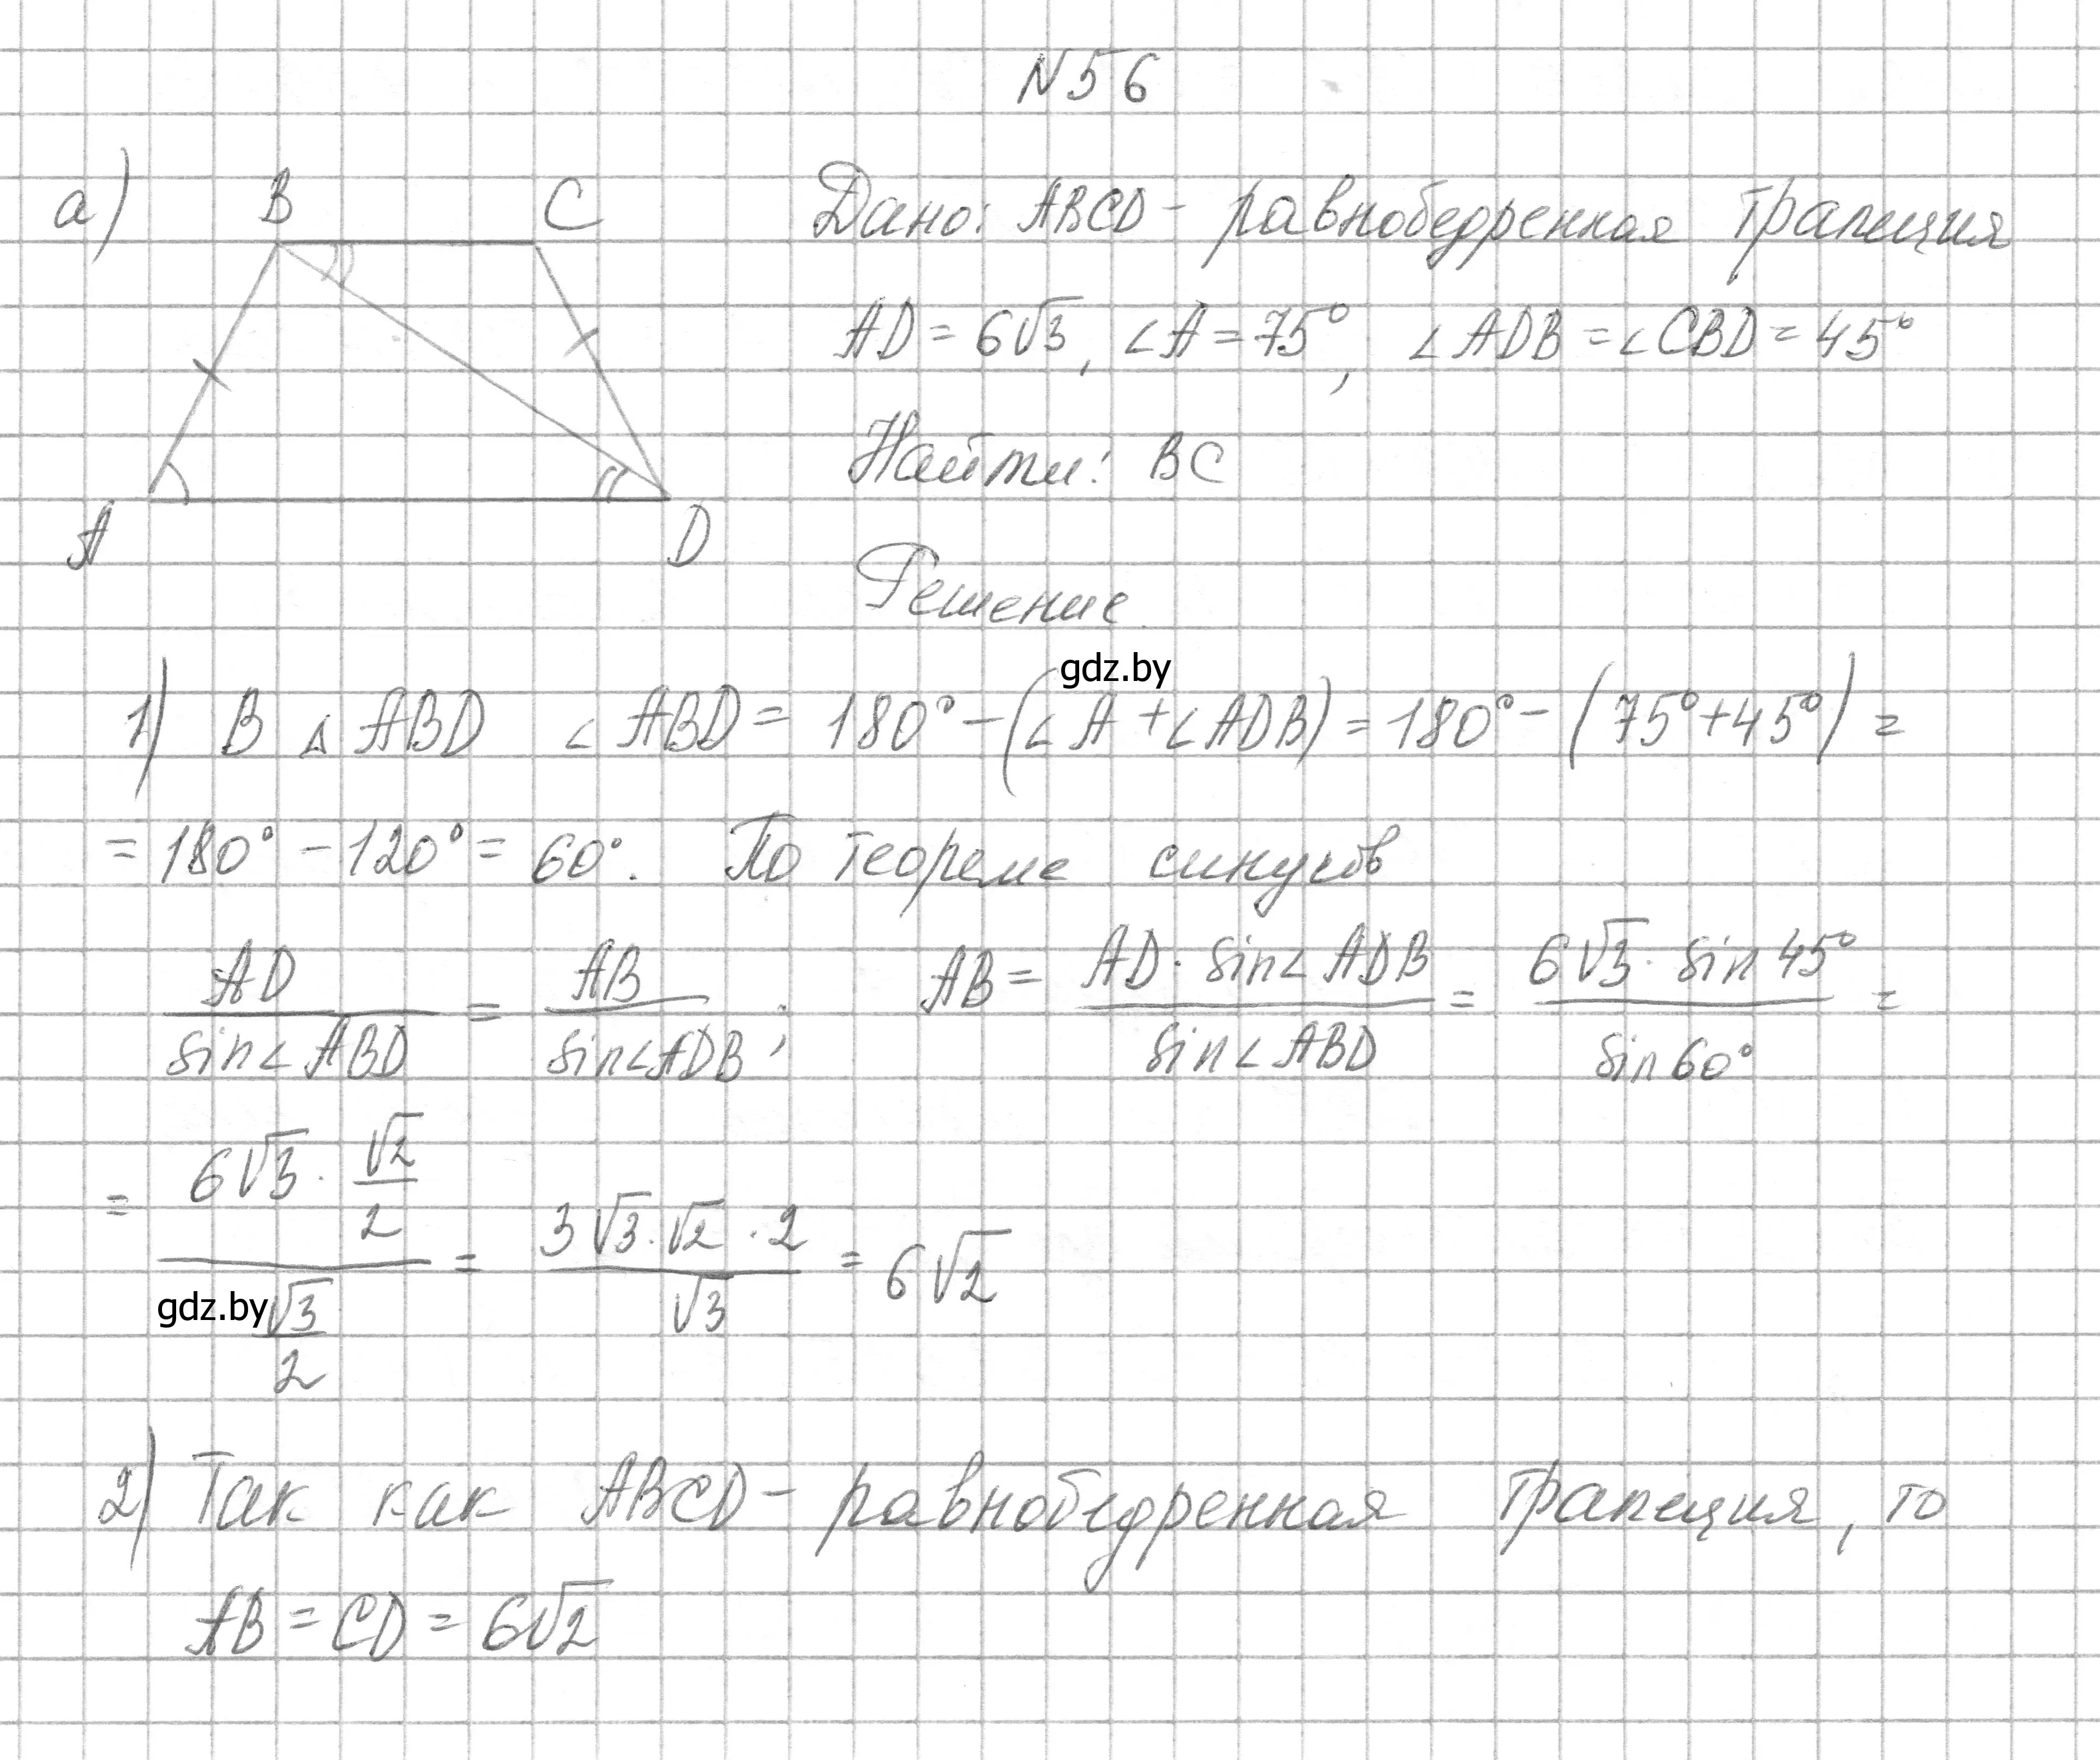 N56
а)
B C
A D
Дано: ABCD - равнобедренная трапеция
AD = 6√3, ∠A = 75°, ∠ADB = ∠CBD = 45°
Найти: BC
Решение
gdz.by
1) В △ ABD ∠ABD = 180° - (∠A + ∠ADB) = 180° - (75° + 45°) =
= 180° - 120° = 60°. По теореме синусов
AD / sin∠ABD = AB / sin∠ADB ; AB = AD · sin∠ADB / sin∠ABD = 6√3 · sin 45° / sin 60° =
= (6√3 · √2/2) / (√3/2) = 3√3 · √2 · 2 / √3 = 6√2
gdz.by
2) Так как ABCD - равнобедренная трапеция, то
AB = CD = 6√2